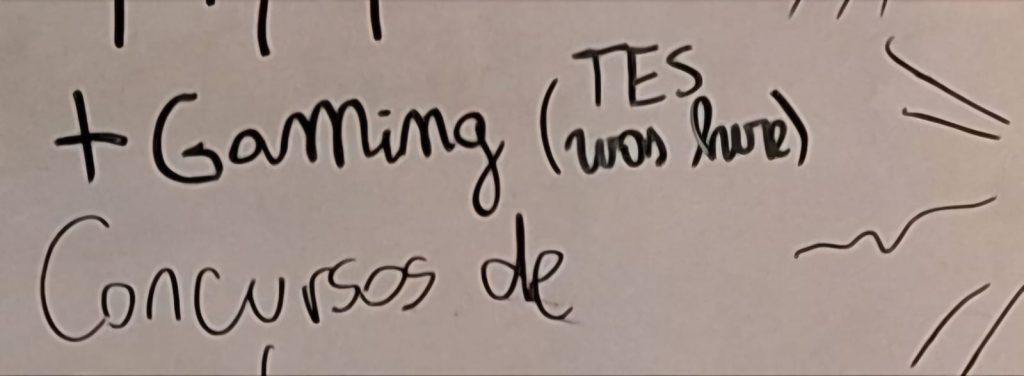 + Gaming (TES was here)
Concursos de